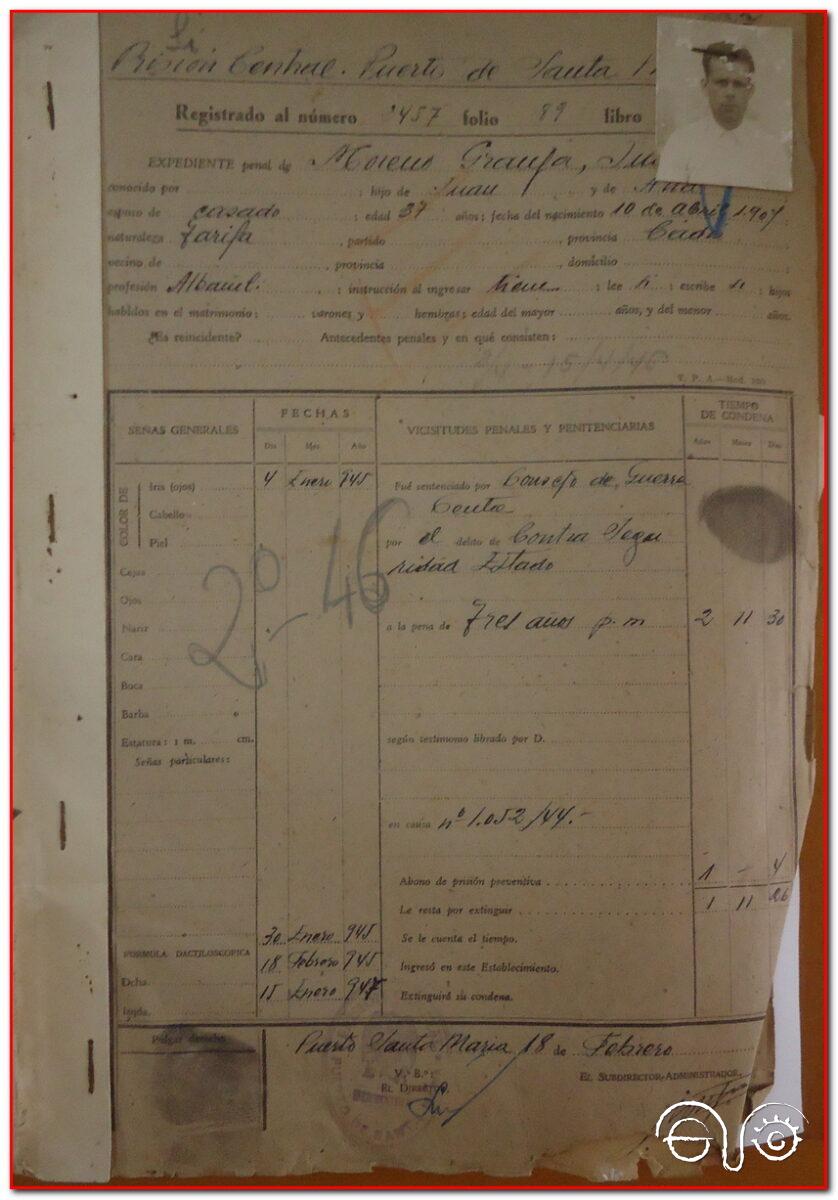 Prisión Central. Puerto de Santa
Registrado al número 457 folio 89 libro
EXPEDIENTE penal de Moreno
conocido por ; hijo de Juan y de Ana
esposo de casado ; edad 37 años; fecha del nacimiento 10 de Abril 1.907.
naturaleza Tarifa , partido , provincia Cádiz
vecino de , provincia , domicilio ;
profesión Albañil. ; instrucción al ingresar tiene ; lee si ; escribe si ; hijos
habidos en el matrimonio: varones y hembras; edad del mayor años, y del menor años.
¿Es reincidente? Antecedentes penales y en qué consisten:
T. P. A.—Mod.
SEÑAS GENERALES
FECHAS
Día Mes Año
VICISITUDES PENALES Y PENITENCIARIAS
TIEMPO DE CONDENA
Años Meses Días
COLOR DE
Iris (ojos) 4 Enero 945 Fué sentenciado por Consejo de Guerra
Cabello Ceuta
Piel por el delito de Contra Segu
Cejas ridad Estado
Ojos
2º-46
Nariz a la pena de Tres años p. m 2 11 30
Cara
Boca
Barba
Estatura: 1 m. cm. según testimonio librado por D.
Señas particulares:
en causa nº 1.052/44.-
Abono de prisión preventiva 1 - 4
Le resta por extinguir 1 11 26
30 Enero 945 Se le cuenta el tiempo.
FÓRMULA DACTILOSCÓPICA 18 Febrero 945 Ingresó en este Establecimiento.
Dcha. 15 Enero 947 Extinguirá su condena.
Izqda.
Pulgar derecho
Puerto Santa María 18 de Febrero
V.º B.º:
EL DIRECTOR
EL SUBDIRECTOR-ADMINISTRADOR,